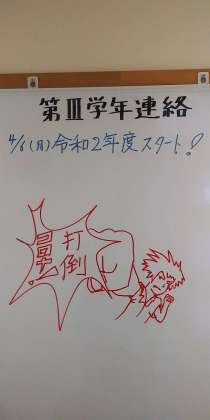 第Ⅲ学年連絡
4/6(月)令和2年度スタート!
打倒